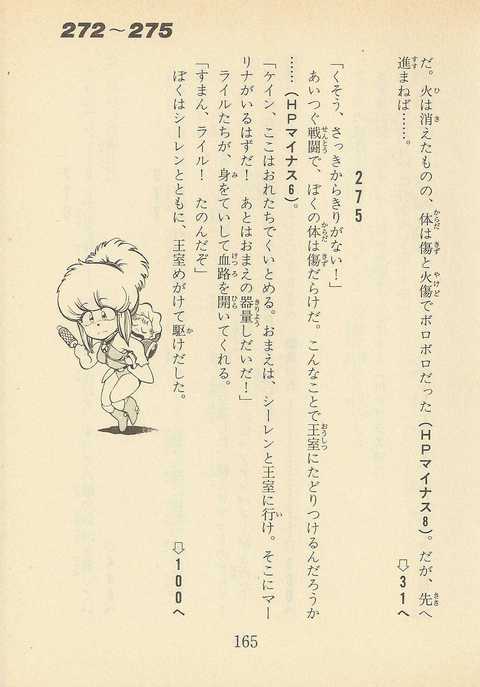 272～275
だ。火は消えたものの、体は傷と火傷でボロボロだった（HPマイナス8）。だが、先へ
進まねば……。
⇩31へ
275
「くそう、さっきからきりがない！」
あいつぐ戦闘で、ぼくの体は傷だらけだ。こんなことで王室にたどりつけるんだろうか
……（HPマイナス6）。
「ケイン、ここはおれたちでくいとめる。おまえは、シーレンと王室に行け。そこにマー
リナがいるはずだ！　あとはおまえの器量しだいだ！」
ライルたちが、身をていして血路を開いてくれる。
「すまん、ライル！　たのんだぞ」
ぼくはシーレンとともに、王室めがけて駆けだした。
⇩100へ
165